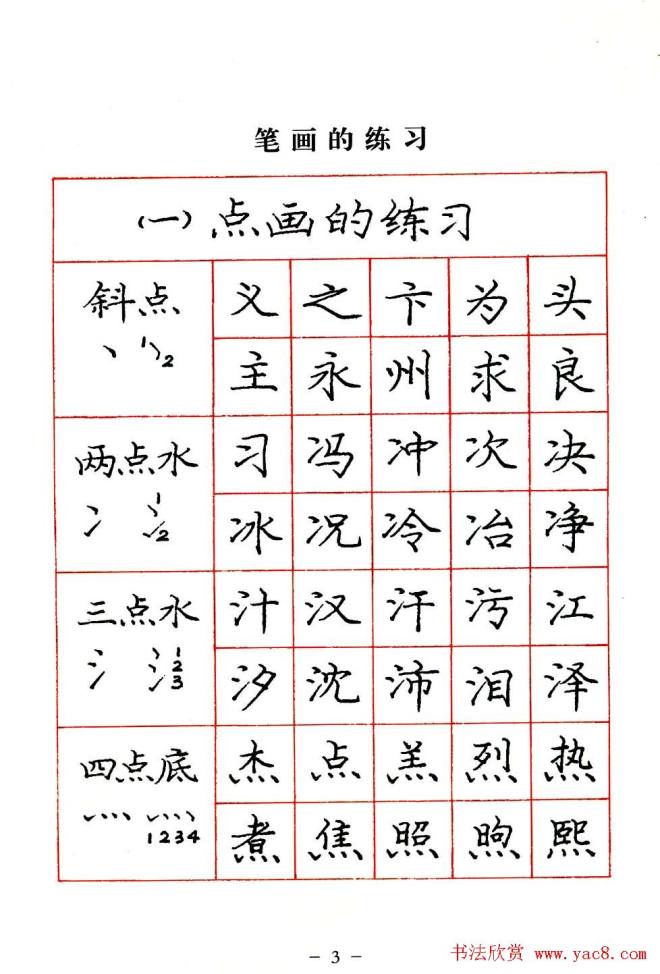 笔画的练习
(一)点画的练习
斜点 义 之 卞 为 头
丶 1 2 主 永 州 求 良
两点水 习 冯 冲 次 决
冫 1 2 冰 况 冷 冶 净
三点水 汁 汉 汗 污 江
氵 1 2 3 汐 沈 沛 泪 泽
四点底 杰 点 羔 烈 热
灬 1234 煮 焦 照 煦 熙
- 3 -
书法欣赏 www.yac8.com